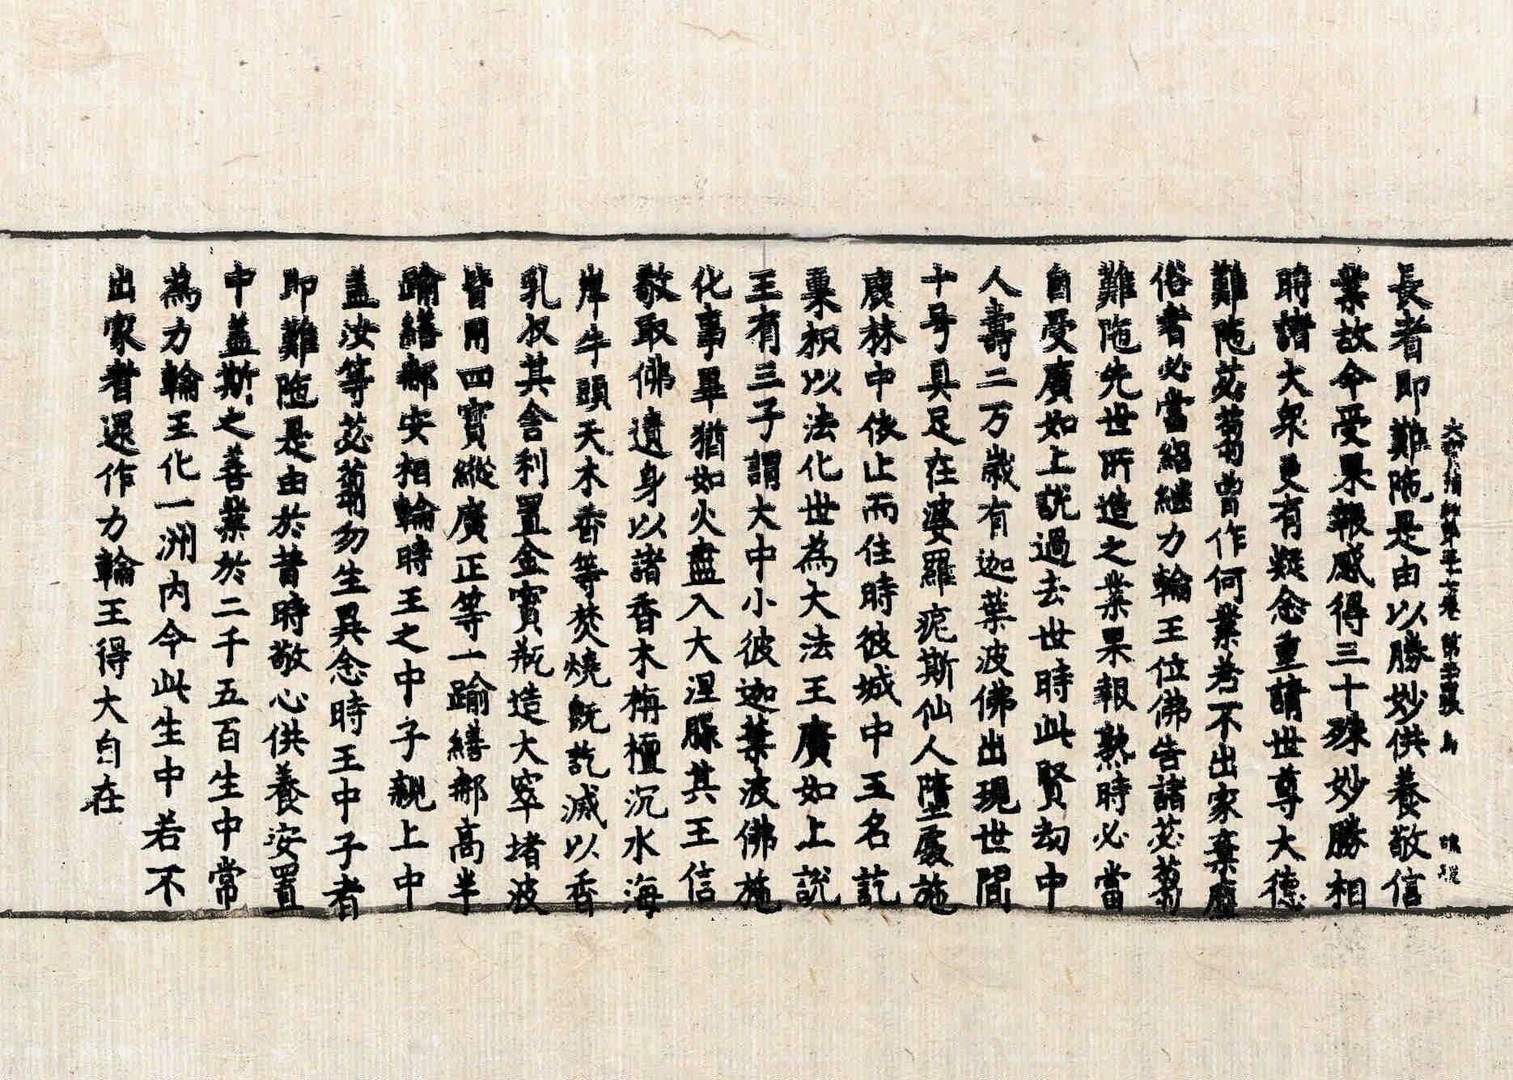 長者即難陁是由以勝妙供養敬信
業故今受果報感得三十殊妙勝相
時諸大衆更有疑念重請世尊大德
難陁苾蒭曾作何業若不出家棄塵
俗者必當紹継力輪王位佛告諸苾蒭
難陁先世所造之業果報熟時必當
自受廣如上說過去世時此賢劫中
人壽二万歲有迦葉波佛出現世間
十号具足在婆羅痆斯仙人墮處施
鹿林中依止而住時彼城中王名訖
栗枳以法化世為大法王廣如上說
王有三子謂大中小彼迦葉波佛施
化事畢猶如火盡入大涅脲其王信
敬取佛遺身以諸香木栴檀沉水海
岸牛頭天木香等焚燒旣訖滅以香
乳収其舍利置金寶瓶造大窣堵波
皆用四寶縱廣正等一踰繕那高半
踰繕那安相輪時王之中子親上中
盖汝等苾蒭勿生異念時王中子者
即難陁是由於昔時敬心供養安置
中盖斯之善業於二千五百生中常
為力輪王化一洲内今此生中若不
出家者還作力輪王得大自在